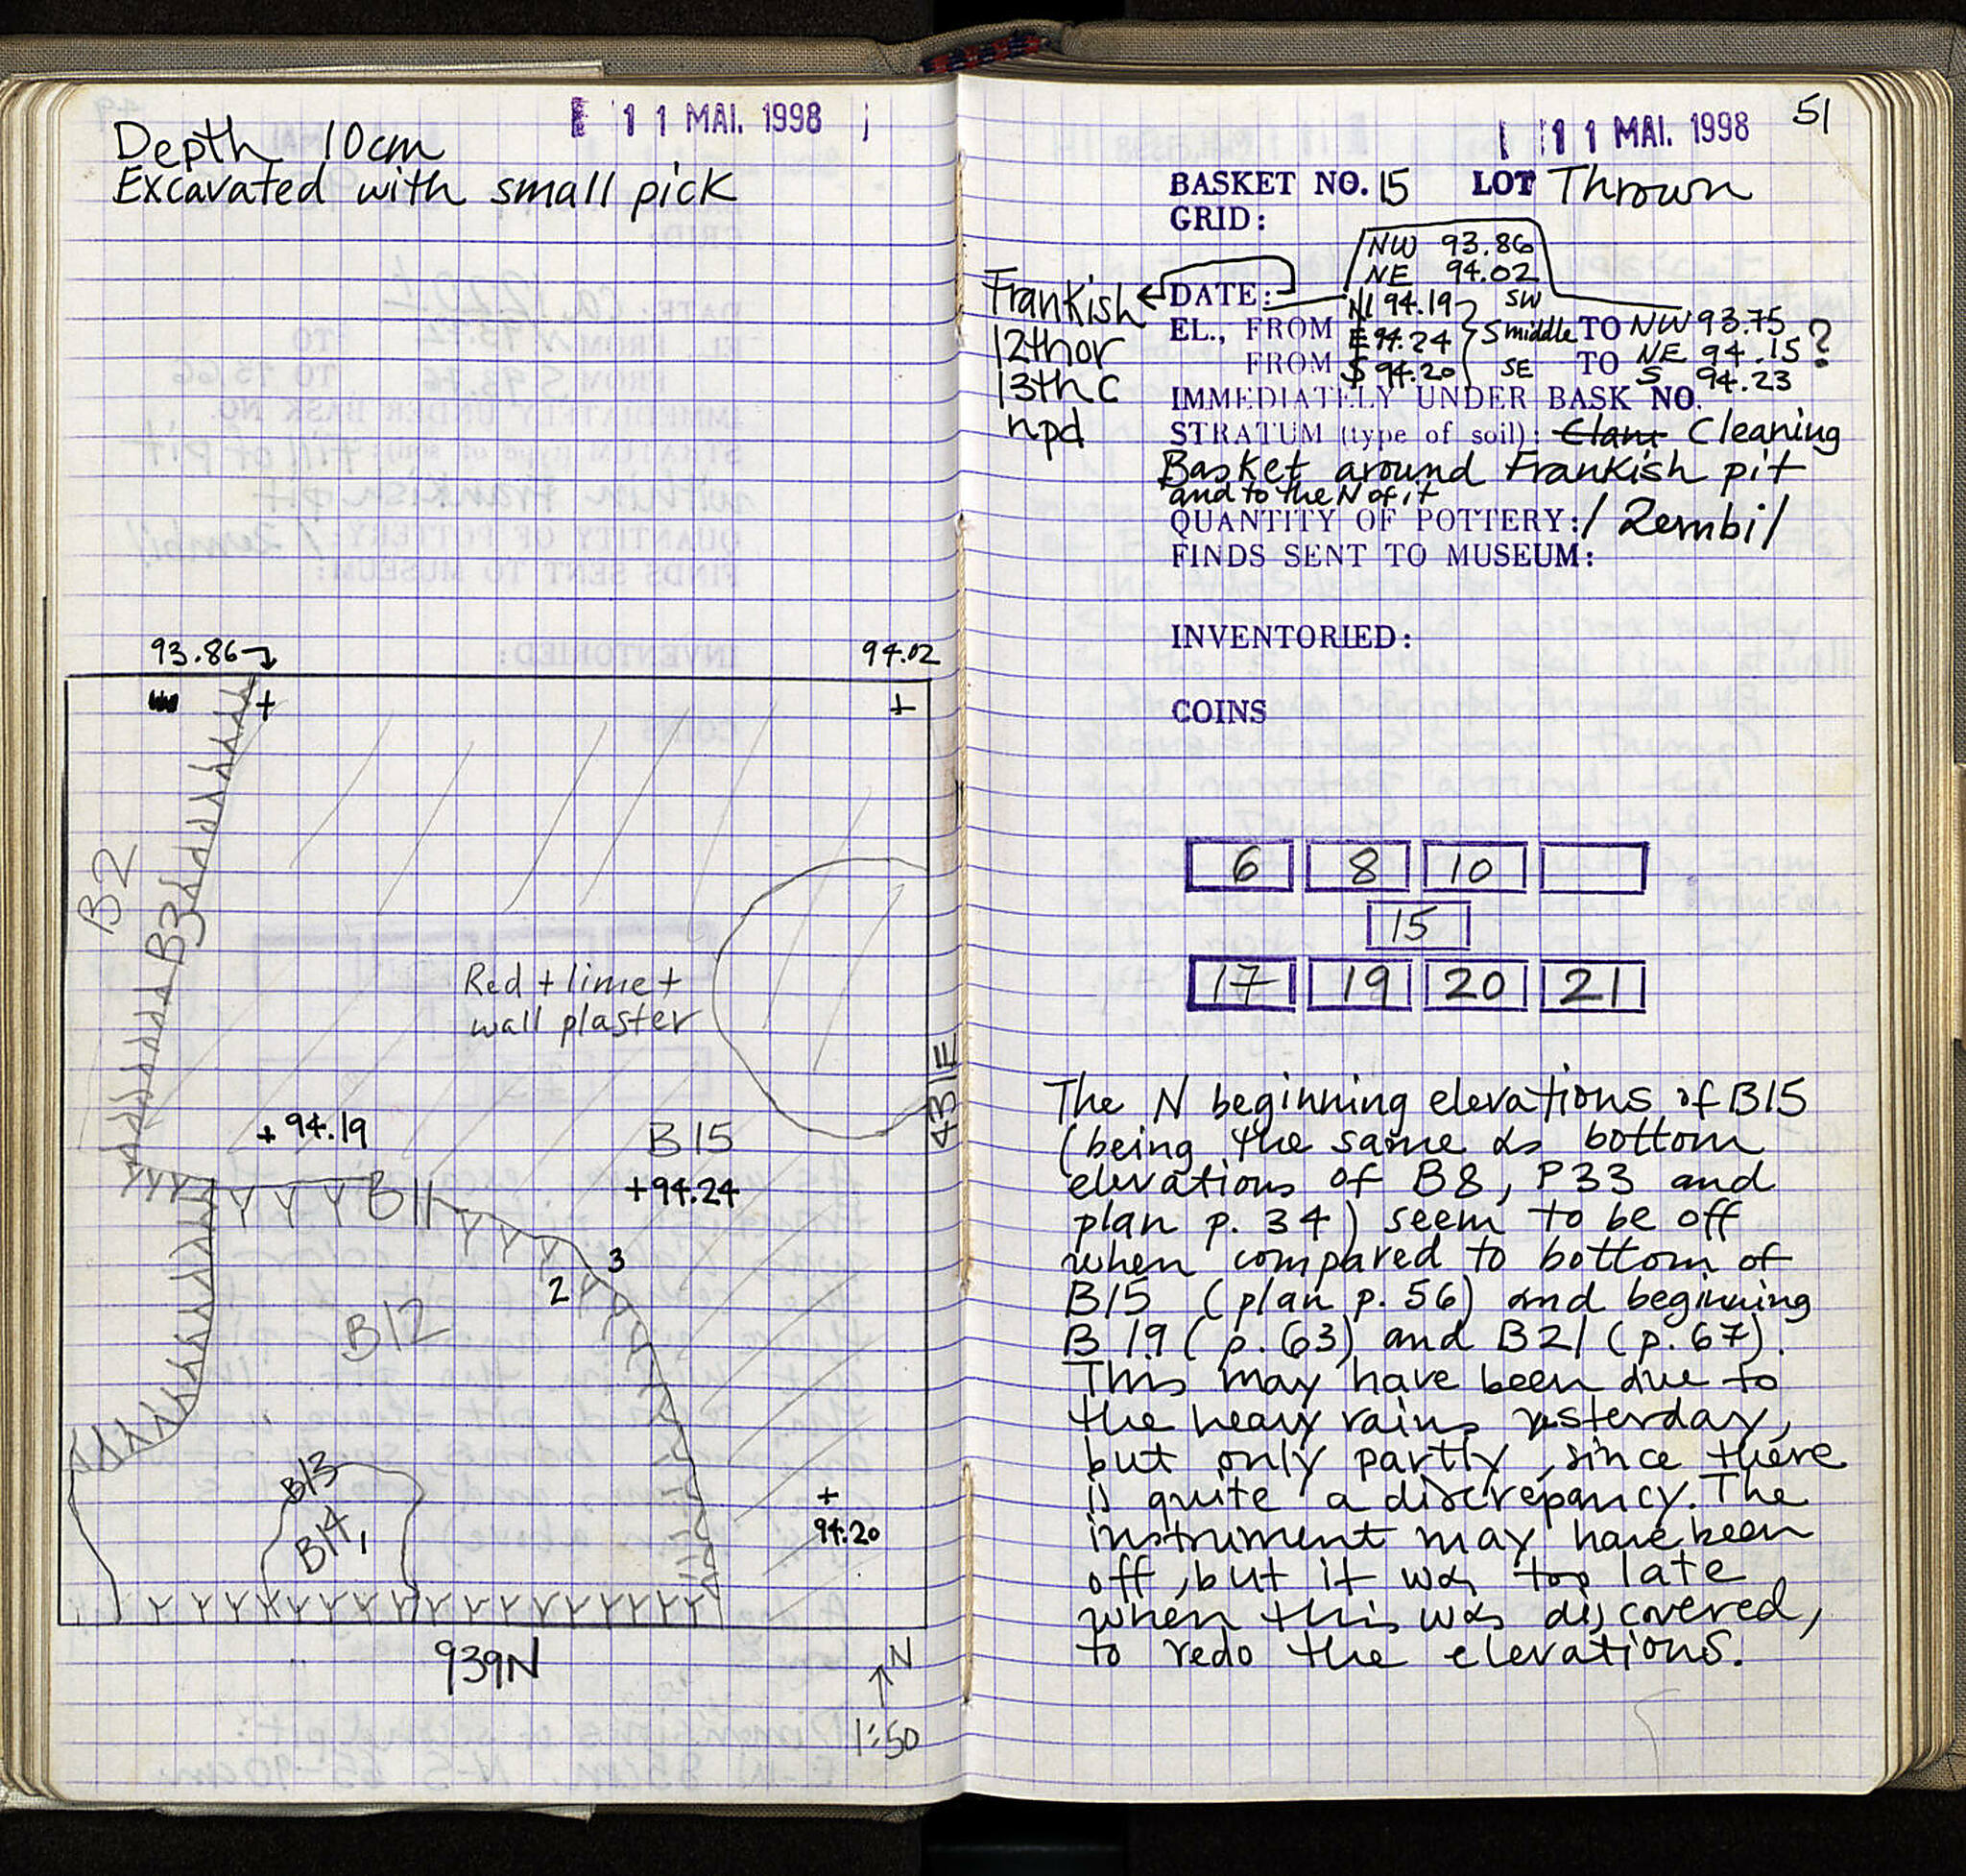 11 MAI. 1998
Depth 10cm
Excavated with small pick
93.86
94.02
B2
B3
Red + lime +
wall plaster
431E
+ 94.19
B15
B11
+94.24
3
2
B12
B13
B14
1
+
94.20
939N
N
1:50
51
11 MAI. 1998
BASKET NO. 15 LOT Thrown
GRID:
NW 93.86
NE 94.02
Frankish
12th or
13th c
npd
DATE:
N 94.19 SW
EL., FROM E 94.24 S middle TO NW 93.75
FROM S 94.20 SE TO NE 94.15 ?
S 94.23
IMMEDIATELY UNDER BASK NO.
STRATUM (type of soil): Cleaning
Basket around Frankish pit
and to the N of it
QUANTITY OF POTTERY: 1 Zembil
FINDS SENT TO MUSEUM:
INVENTORIED:
COINS
6 8 10
15
17 19 20 21
The N beginning elevations of B15
(being the same as bottom
elevations of B8, P33 and
plan p. 34) seem to be off
when compared to bottom of
B15 (plan p. 56) and beginning
B 19 (p. 63) and B21 (p. 67).
This may have been due to
the heavy rains yesterday,
but only partly, since there
is quite a discrepancy. The
instrument may have been
off, but it was too late
when this was discovered,
to redo the elevations.